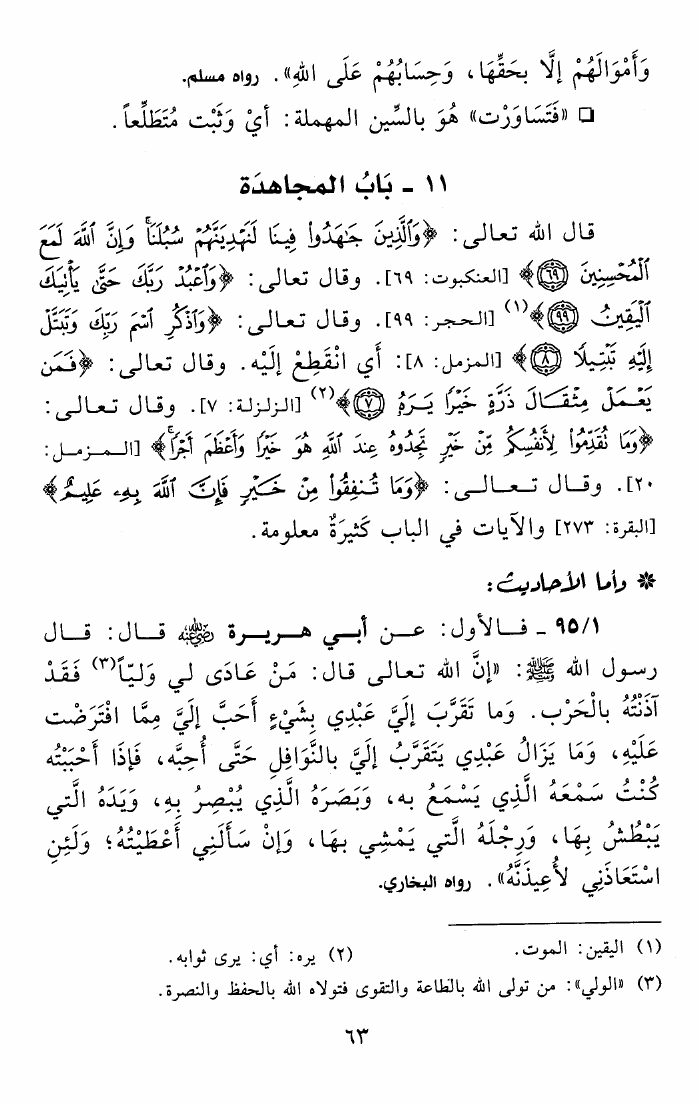 وَأَمْوَالَهُمْ إلَّا بِحَقِّهَا، وَحِسَابُهُمْ عَلَى اللهِ». رواه مسلم.
❑ «فَتَسَاوَرْت» هُوَ بالسِّين المهملة: أيْ وَثَبْت مُتَطَلِّعاً.
١١ - بَابُ المجاهدَة
قال الله تعالى: ﴿وَٱلَّذِينَ جَٰهَدُوا۟ فِينَا لَنَهْدِيَنَّهُمْ سُبُلَنَا ۚ وَإِنَّ ٱللَّهَ لَمَعَ
ٱلْمُحْسِنِينَ ٦٩﴾ [العنكبوت: ٦٩]. وقال تعالى: ﴿وَٱعْبُدْ رَبَّكَ حَتَّىٰ يَأْتِيَكَ
ٱلْيَقِينُ ٩٩﴾(١) [الحجر: ٩٩]. وقال تعالى: ﴿وَٱذْكُرِ ٱسْمَ رَبِّكَ وَتَبَتَّلْ
إِلَيْهِ تَبْتِيلًا ٨﴾ [المزمل: ٨]: أي انْقَطِعْ إلَيْه. وقال تعالى: ﴿فَمَن
يَعْمَلْ مِثْقَالَ ذَرَّةٍ خَيْرًا يَرَهُۥ ٧﴾(٢) [الزلزلة: ٧]. وقال تعالى:
﴿وَمَا تُقَدِّمُوا۟ لِأَنفُسِكُم مِّنْ خَيْرٍ تَجِدُوهُ عِندَ ٱللَّهِ هُوَ خَيْرًا وَأَعْظَمَ أَجْرًا ۚ﴾ [المزمل:
٢٠]. وقال تعالى: ﴿وَمَا تُنفِقُوا۟ مِنْ خَيْرٍ فَإِنَّ ٱللَّهَ بِهِۦ عَلِيمٌ﴾
[البقرة: ٢٧٣] والآيات في الباب كَثِيرَةٌ معلومة.
* وأما الأحاديث:
٩٥/١ - فالأول: عن أبي هريرة رضي الله عنه قال: قال
رسول الله ﷺ: «إنَّ الله تعالى قال: مَنْ عَادَى لي وَليّاً(٣) فَقَدْ
آذَنْتُهُ بالْحَرْب. وَما تَقَرَّبَ إلَيَّ عَبْدِي بِشَيْءٍ أَحَبَّ إلَيَّ مِمَّا افْتَرَضْت
عَلَيْهِ، وَمَا يَزَالُ عَبْدِي يَتَقَرَّبُ إلَيَّ بالنَّوَافِلِ حَتَّى أُحِبَّه، فَإذَا أَحْبَبْتُه
كُنْتُ سَمْعَهُ الَّذِي يَسْمَعُ به، وَبَصَرَهُ الَّذِي يُبْصِرُ بِهِ، وَيَدَهُ الَّتي
يَبْطُشُ بِهَا، وَرِجْلَهُ الَّتي يَمْشِي بهَا، وَإنْ سَأَلَنِي أَعْطَيْتُهُ؛ وَلَئِنِ
اسْتَعَاذَنِي لأُعِيذَنَّهُ». رواه البخاري.
(١) اليقين: الموت. (٢) يره: أي: يرى ثوابه.
(٣) «الولي»: من تولى الله بالطاعة والتقوى فتولاه الله بالحفظ والنصرة.
٦٣